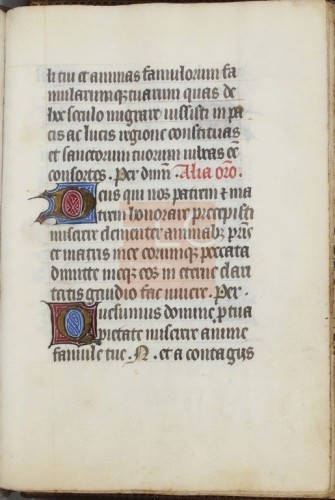 li tui et animas famulorum fa
mularumq; tuarum quas de
hoc seculo migrare iussisti in pa
cis ac lucis regione constituas
et sanctorum tuorum iubeas eē
consortes. Per dum̄. Alia orō.
Deus qui nos patrem et ma
trem honorare precepisti
miserere clementer animab; pr̄is
et matris mee eorumq; peccata
dimitte meq; eos in eterne clari
tatis gaudio fac uiuere. Per.
Quesumus domine p̄ tua
pietate miserere anime
famule tue. N. et a contagijs